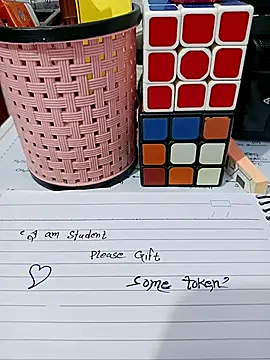 "I am student
Please Gift
Some token"